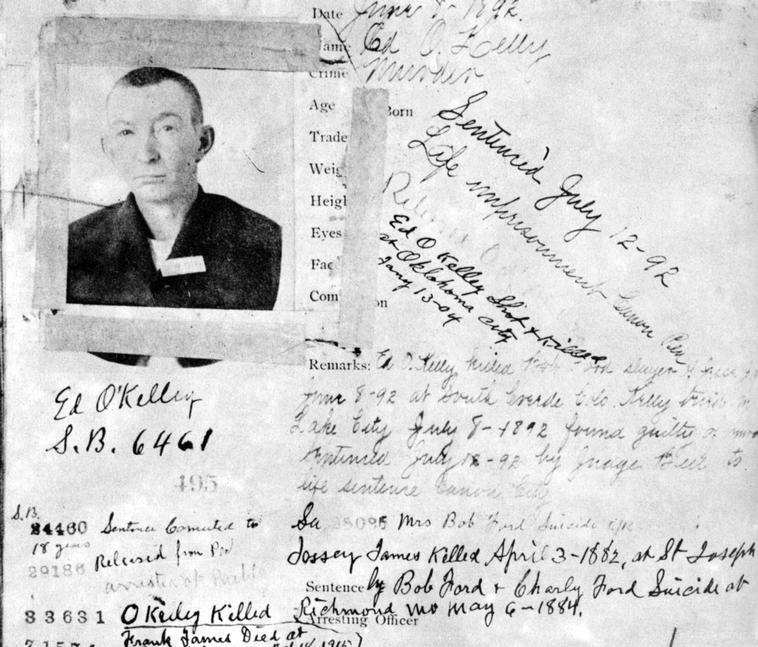 Date June 8-1892.
Name Ed O. Kelly
Crime Murder
Age Born
Trade
Weig
Heigh
Eyes
Fac
Com on
Sentenced July 12-92
Life imprisonment Canon Pen
Ed O Kelley Shot & Killed
at Oklahoma City
Jany 13-04
Remarks: Ed O. Kelly killed Bob Ford slayer of
June 8-92 at South Creede Colo. Kelly tried
Lake City July 8-1892 found guilty of
sentenced July 12-92 by Judge to
life sentence Canon City
Ed O'Kelley
S.B. 6461
495
S.B.
24460 Sentence Comuted to
18 years
Released from Pen
29186 arrested at
Mrs Bob Ford Suicide
Jossey James Killed April 3-1882, at St Joseph
Sentence by Bob Ford & Charly Ford Suicide at
Richmond Mo May 6-1884.
Arresting Officer
33631 O Keily Killed
Frank James Died at
1915)